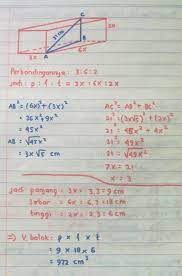 C
2x
21 cm
B
3x
A
6x
Perbandingannya : 3:6:2
Jadi : p : l : t = 3x : 6x : 2x
AB² = (6x)² + (3x)²
= 36x² + 9x²
= 45x²
AB = √45x²
= 3x√5 cm
AC² = AB² + BC²
21² = (3x√5)² + (2x)²
21² = 45x² + 4x²
21² = 49x²
21 = √49x²
7x = 21
x = 3
jadi panjang = 3x = 3.3 = 9 cm
lebar = 6x = 6.3 = 18 cm
tinggi = 2x = 2.3 = 6 cm
=> V. balok : p x l x t
= 9 x 18 x 6
= 972 cm³